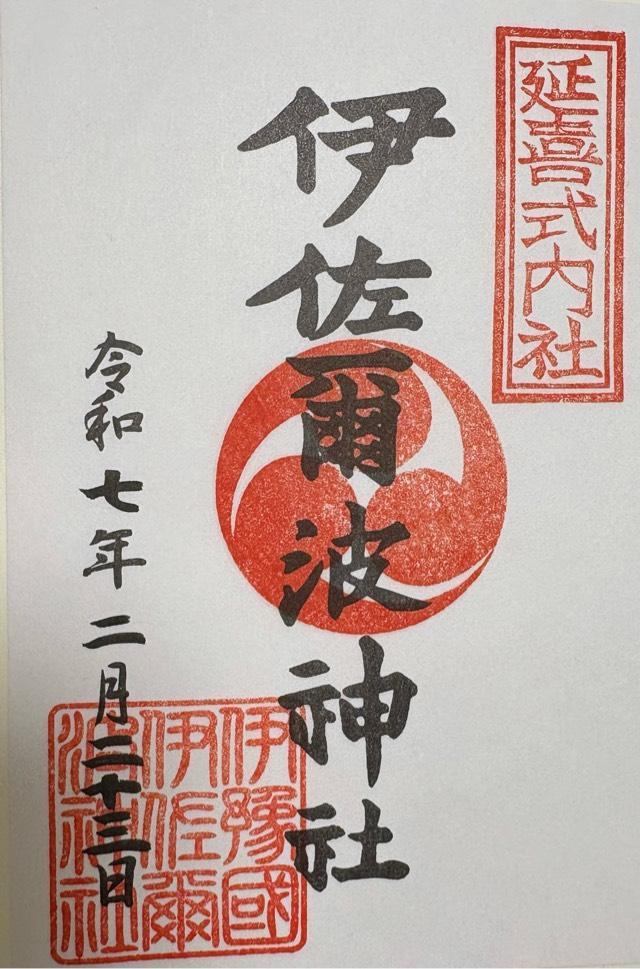 延喜式内社
伊佐爾波神社
令和七年二月二十三日
伊豫國
伊佐爾
波神社